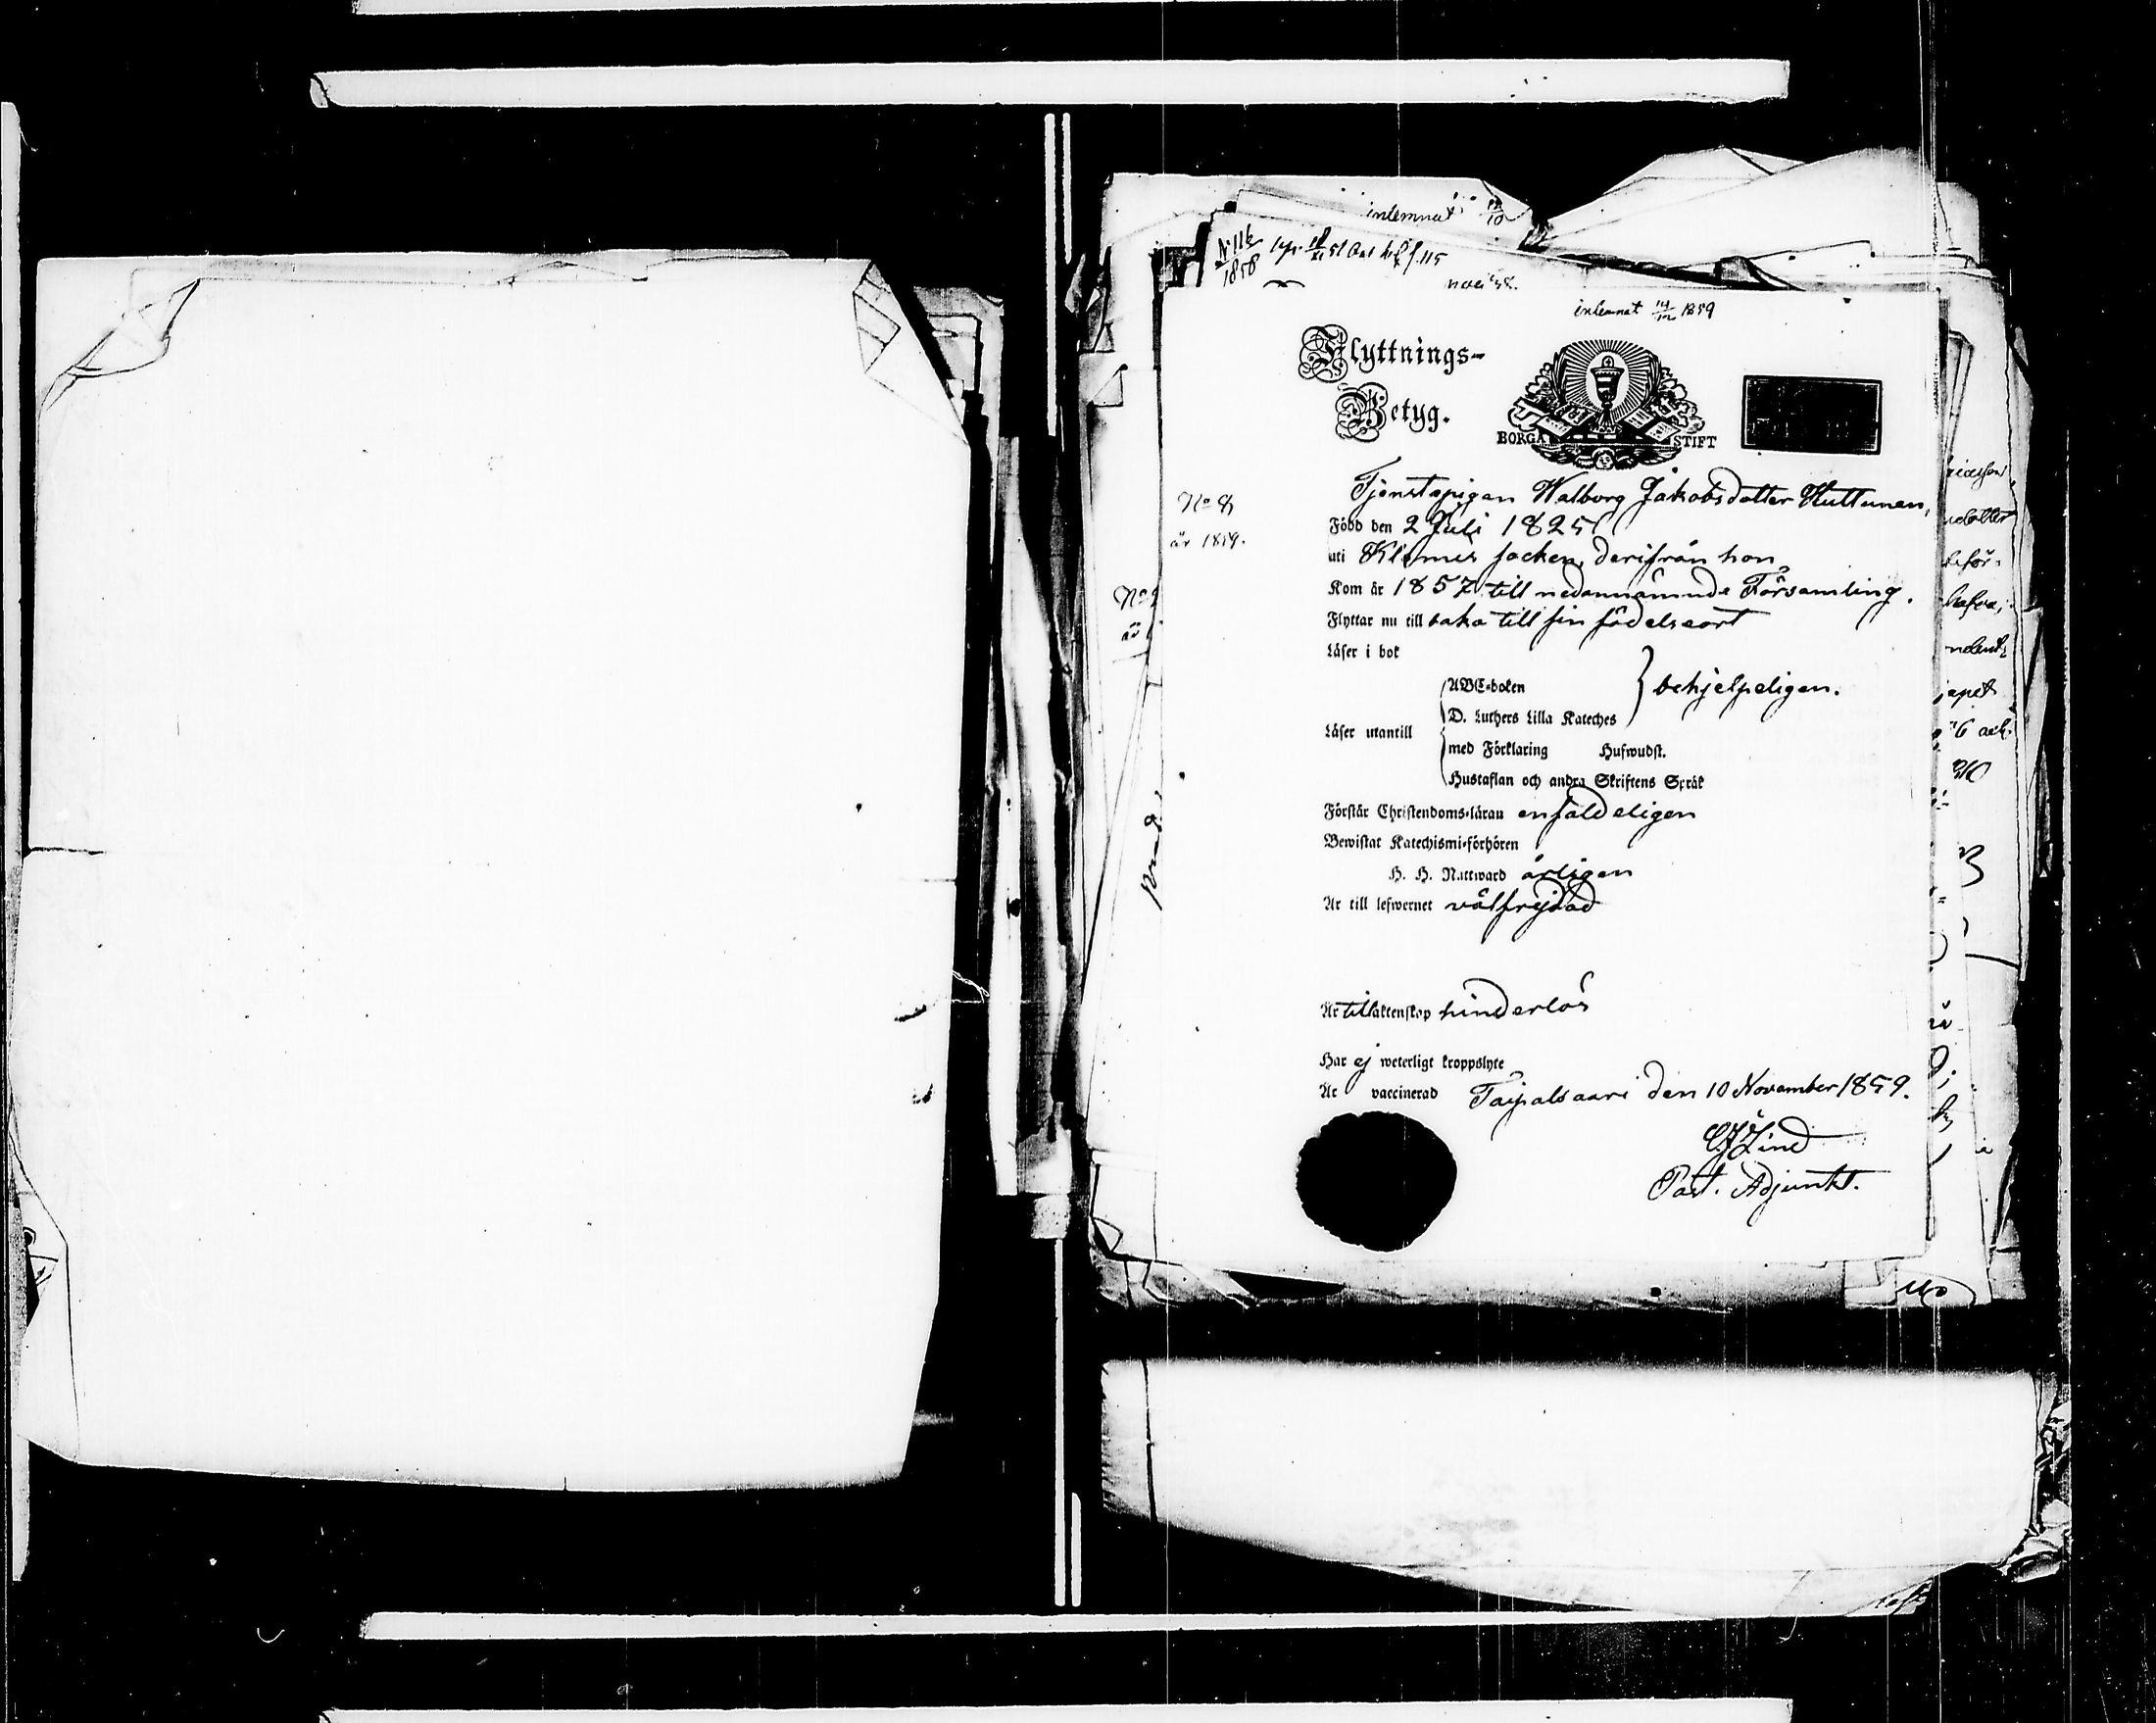 inlemnat 12/10
1858
nov 58.
inlemnat 14/12 1859
Flyttnings-
Betyg.
BORGÅ STIFT
No 8
år 1859.
Tjenstepigan Walborg Jakobsdotter Huttunen,
Född den 2 Juli 1825
uti Klemis socken, derifrån hon
Kom år 1857 till nedannämnde Församling.
Flyttar nu till baka till sin födelseort
Läser i bok
ABC-boken
behjelpeligen.
D. Luthers Lilla Kateches
Läser utantill
med Förklaring Hufwudst.
Hustaflan och andra Skriftens Språk
Förstår Christendoms-läran enfaldeligen
Bewistat Katechismi-förhören
H. H. Nattward årligen
Är till lefwernet välfrejdad
Är till äktenskap hinderlös
Har ej weterligt kroppslyte
Är vaccinerad Taipalsaari den 10 November 1859.
C J Lind
Past. Adjunkt.